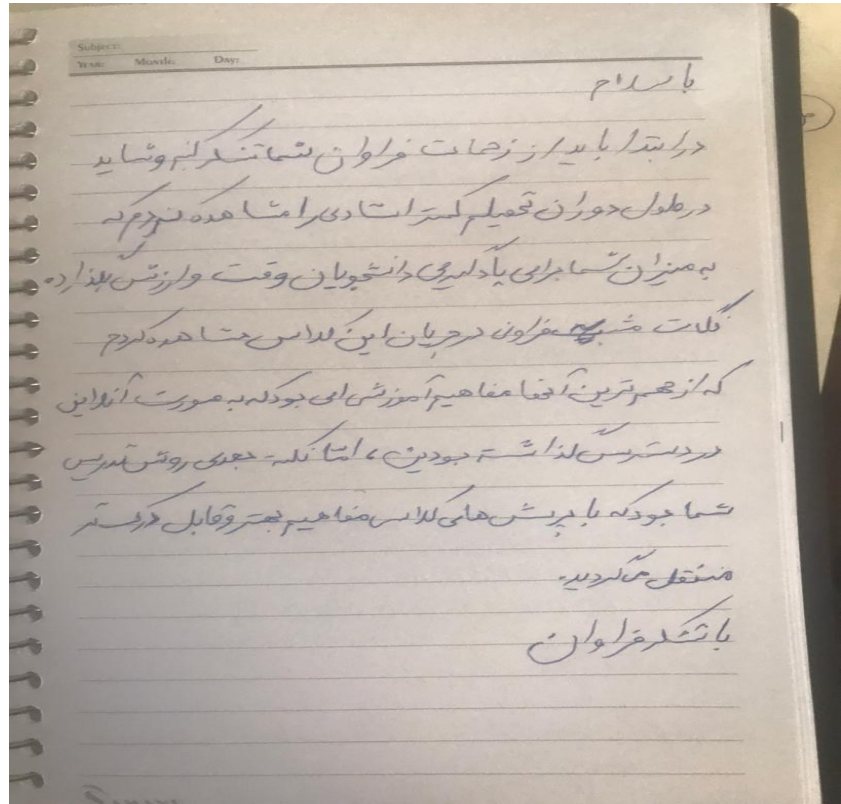 Subject:
Year: Month: Day:
با سلام
در ابتدا باید از زحمات فراوان شما تشکر کنم و شاید
در طول دوران تحصیلم کمتر استادی را مشاهده کردم که
به میزان شما برای یادگیری دانشجویان وقت و ارزش بگذارد.
نکات مثبت فراونی در جریان این کلاس مشاهده کردم
که از مهم ترین آنها مفاهیم آموزشی ای بود که به صورت آنلاین
در دسترس گذاشته بودین، امّا نکته بعدی روش تدریس
شما بود که با پرسش های کلاس مفاهیم بهتر و قابل درک تر
منتقل می کردید.
با تشکر فراوان